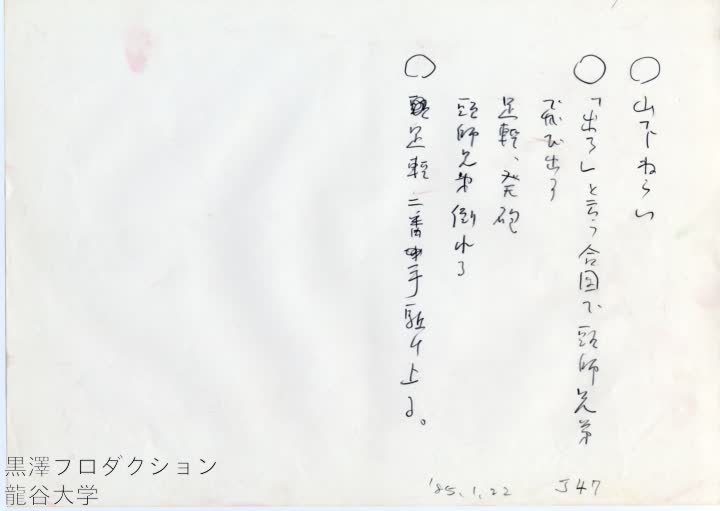 ○ 山下ねらい
○ 「出ろ」と言う合図で頭師兄弟
で飛び出る
足軽、発砲
頭師兄弟倒れる
○ 足軽二番手駈け上る。
'85.1.22 J47
黒澤プロダクション
龍谷大学